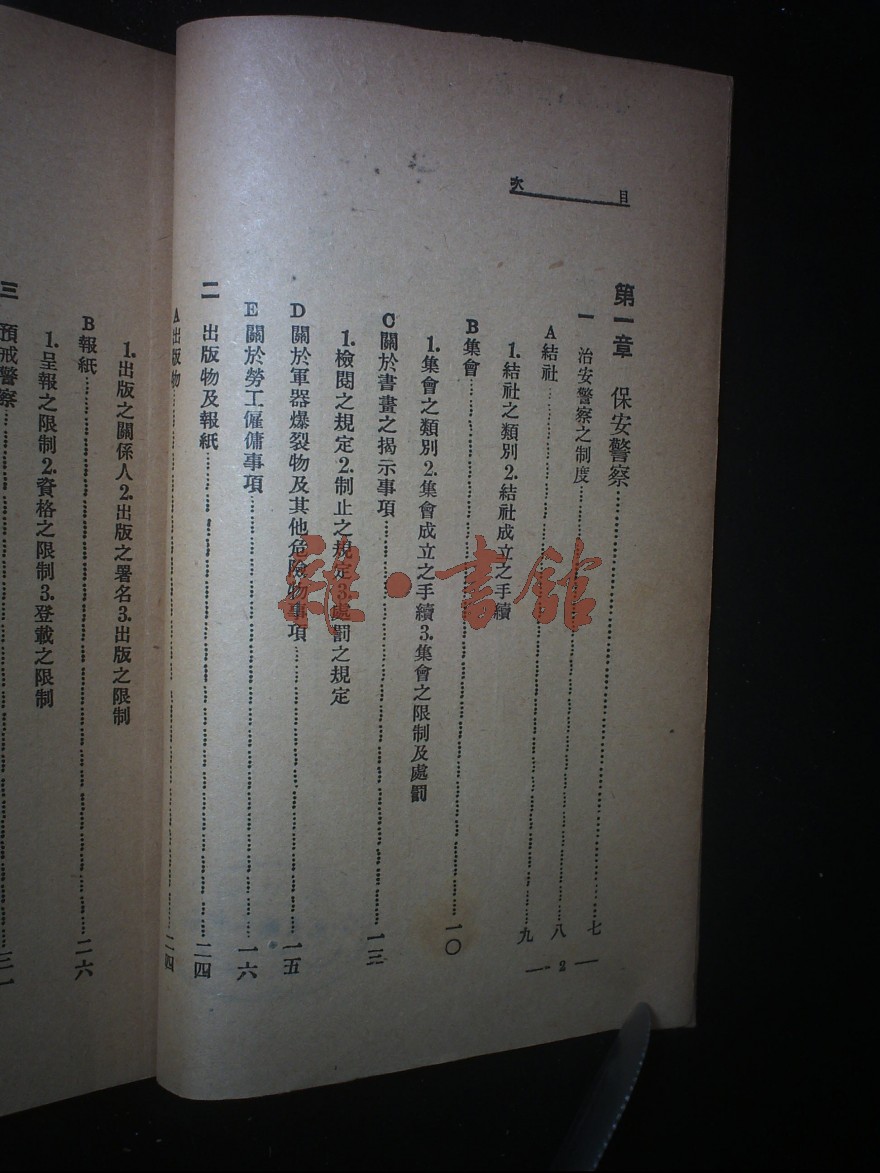 目次
第一章 保安警察……七
一 治安警察之制度……八
A結社……九
1.結社之類別2.結社成立之手續
B集會……一〇
1.集會之類別2.集會成立之手續3.集會之限制及處罰
C關於書畫之揭示事項……一三
1.檢閱之規定2.制止之規定3.處罰之規定
D關於軍器爆裂物及其他危險物事項……一五
E關於勞工僱傭事項……一六
二 出版物及報紙……二四
A出版物……二四
1.出版之關係人2.出版之署名3.出版之限制
B報紙……二六
1.呈報之限制2.資格之限制3.登載之限制
三 預戒警察……三一
— 2 —
雜·書館